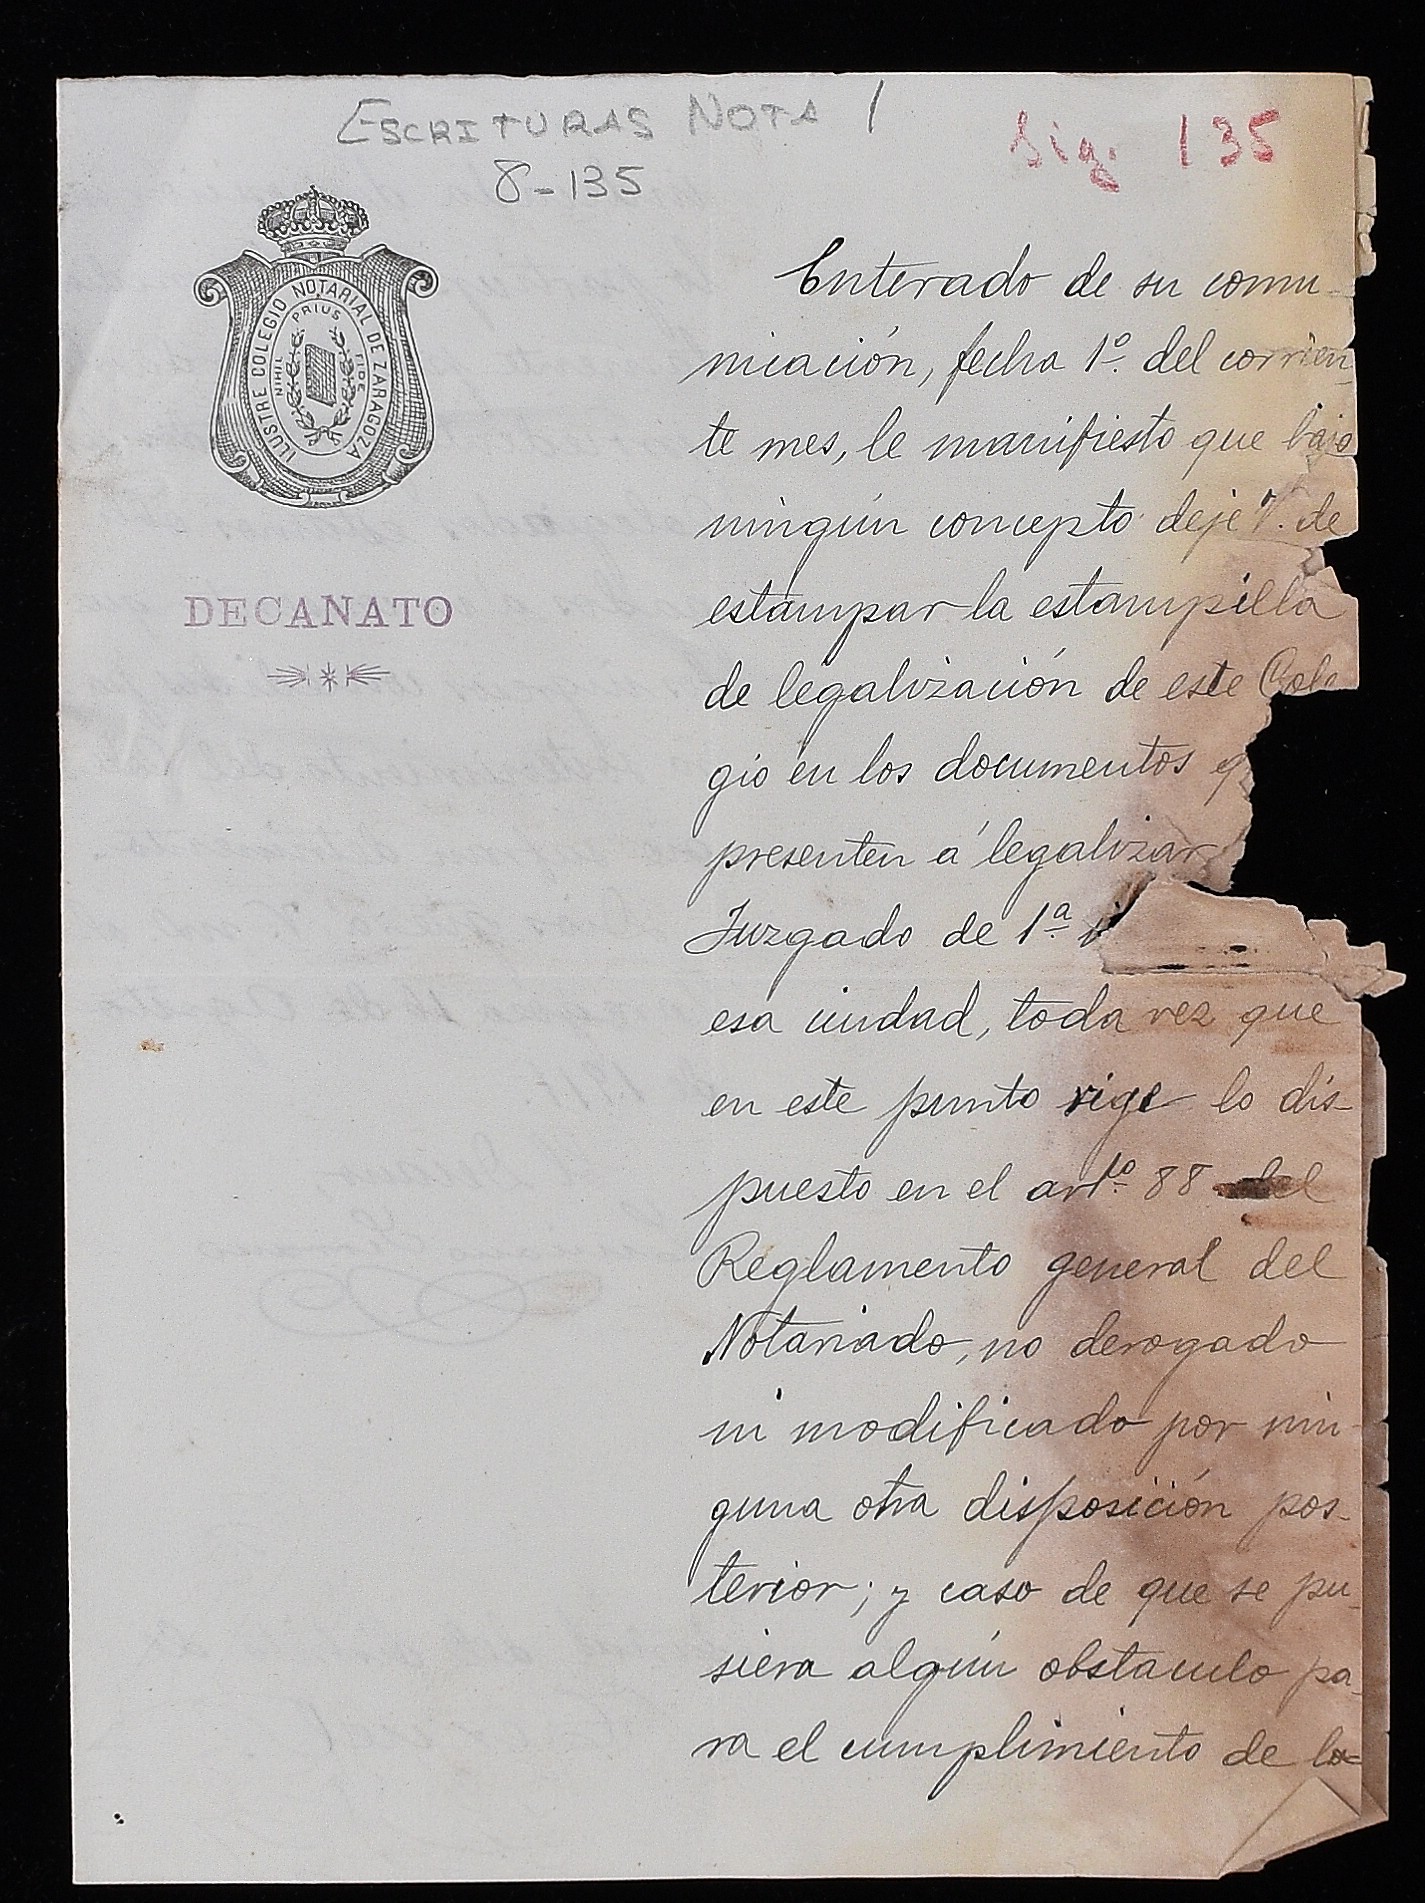 ESCRITURAS NOTA 1
8-135
Sig. 135
ILUSTRE COLEGIO NOTARIAL DE ZARAGOZA
NIHIL PRIUS FIDE
DECANATO
Enterado de su comu-
nicación, fecha 1º. del corrien-
te mes, le manifiesto que bajo
ningún concepto deje V. de
estampar la estampilla
de legalización de este Cole
gio en los documentos q
presenten á legalizar
Juzgado de 1ª. i
esa ciudad, toda vez que
en este punto rige lo dis-
puesto en el artº. 88 del
Reglamento general del
Notariado, no derogado
ni modificado por nin-
guna otra disposición pos-
terior; y caso de que se pu-
siera algún obstaculo pa-
ra el cumplimiento de lo